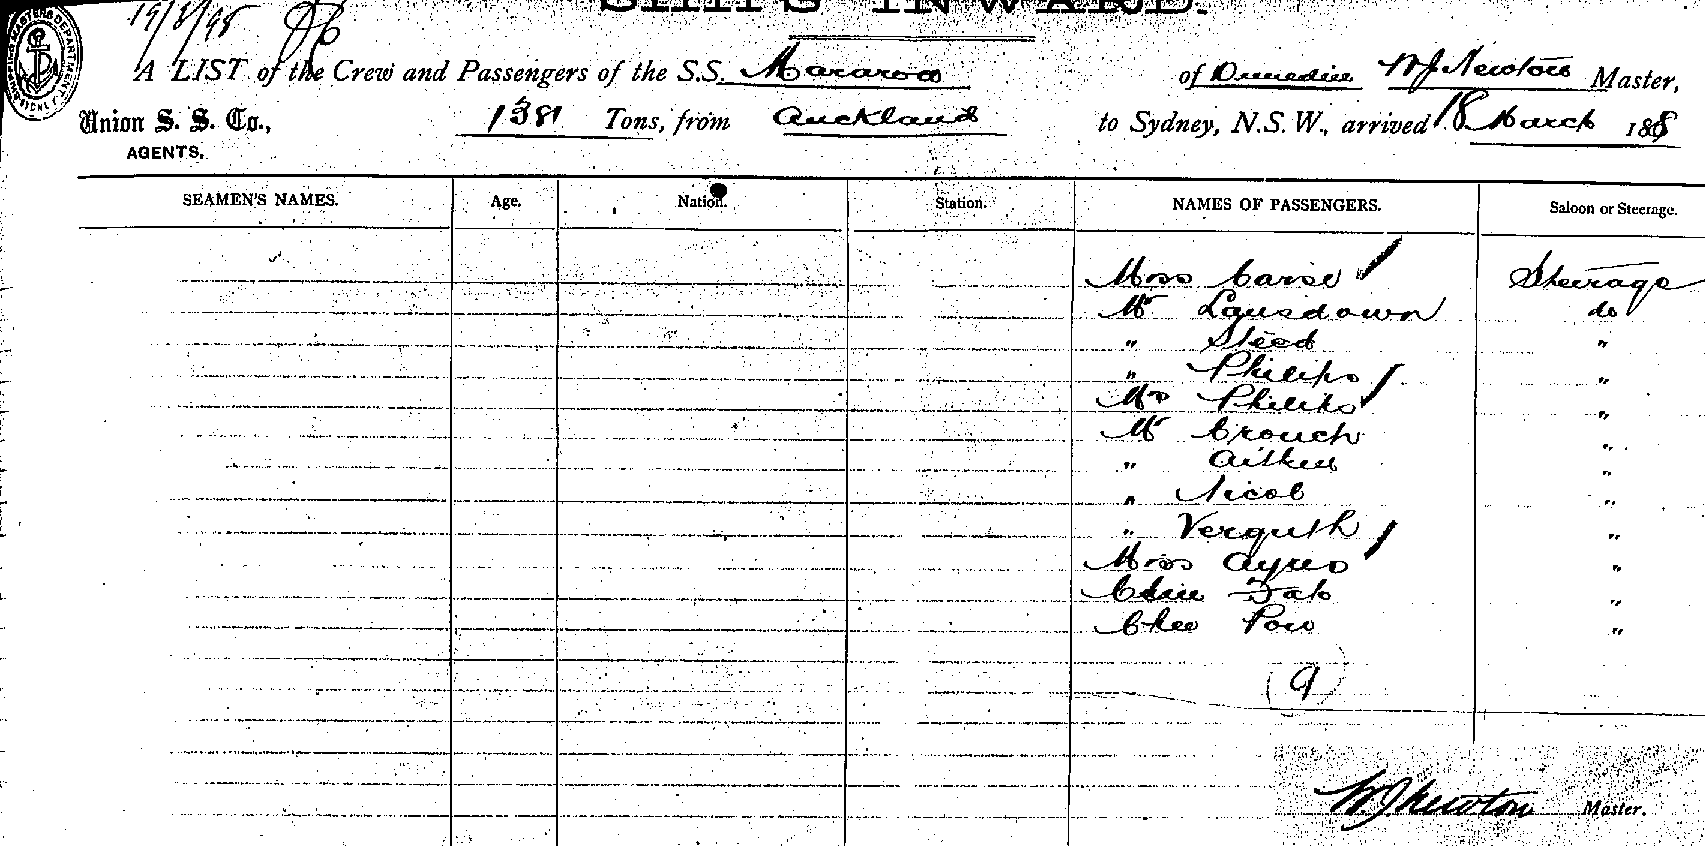 19/3/98
SHIPS INWARD.
A LIST of the Crew and Passengers of the S.S. Mararoa of Dunedin W J Newton Master,
Union S. S. Co.,
AGENTS.
1381 Tons, from Auckland to Sydney, N.S.W., arrived 18 March 188
SEAMEN'S NAMES. Age. Nation. Station. NAMES OF PASSENGERS. Saloon or Steerage.
Miss Carse Steerage
Mr Lansdown do
" Steed "
" Philips "
Mrs Philips "
Mr Crouch "
" Aitken "
" Nicol "
" Verguth "
Miss Ayres "
Chin Fak "
Chee Pow "
9
W J Newton Master.